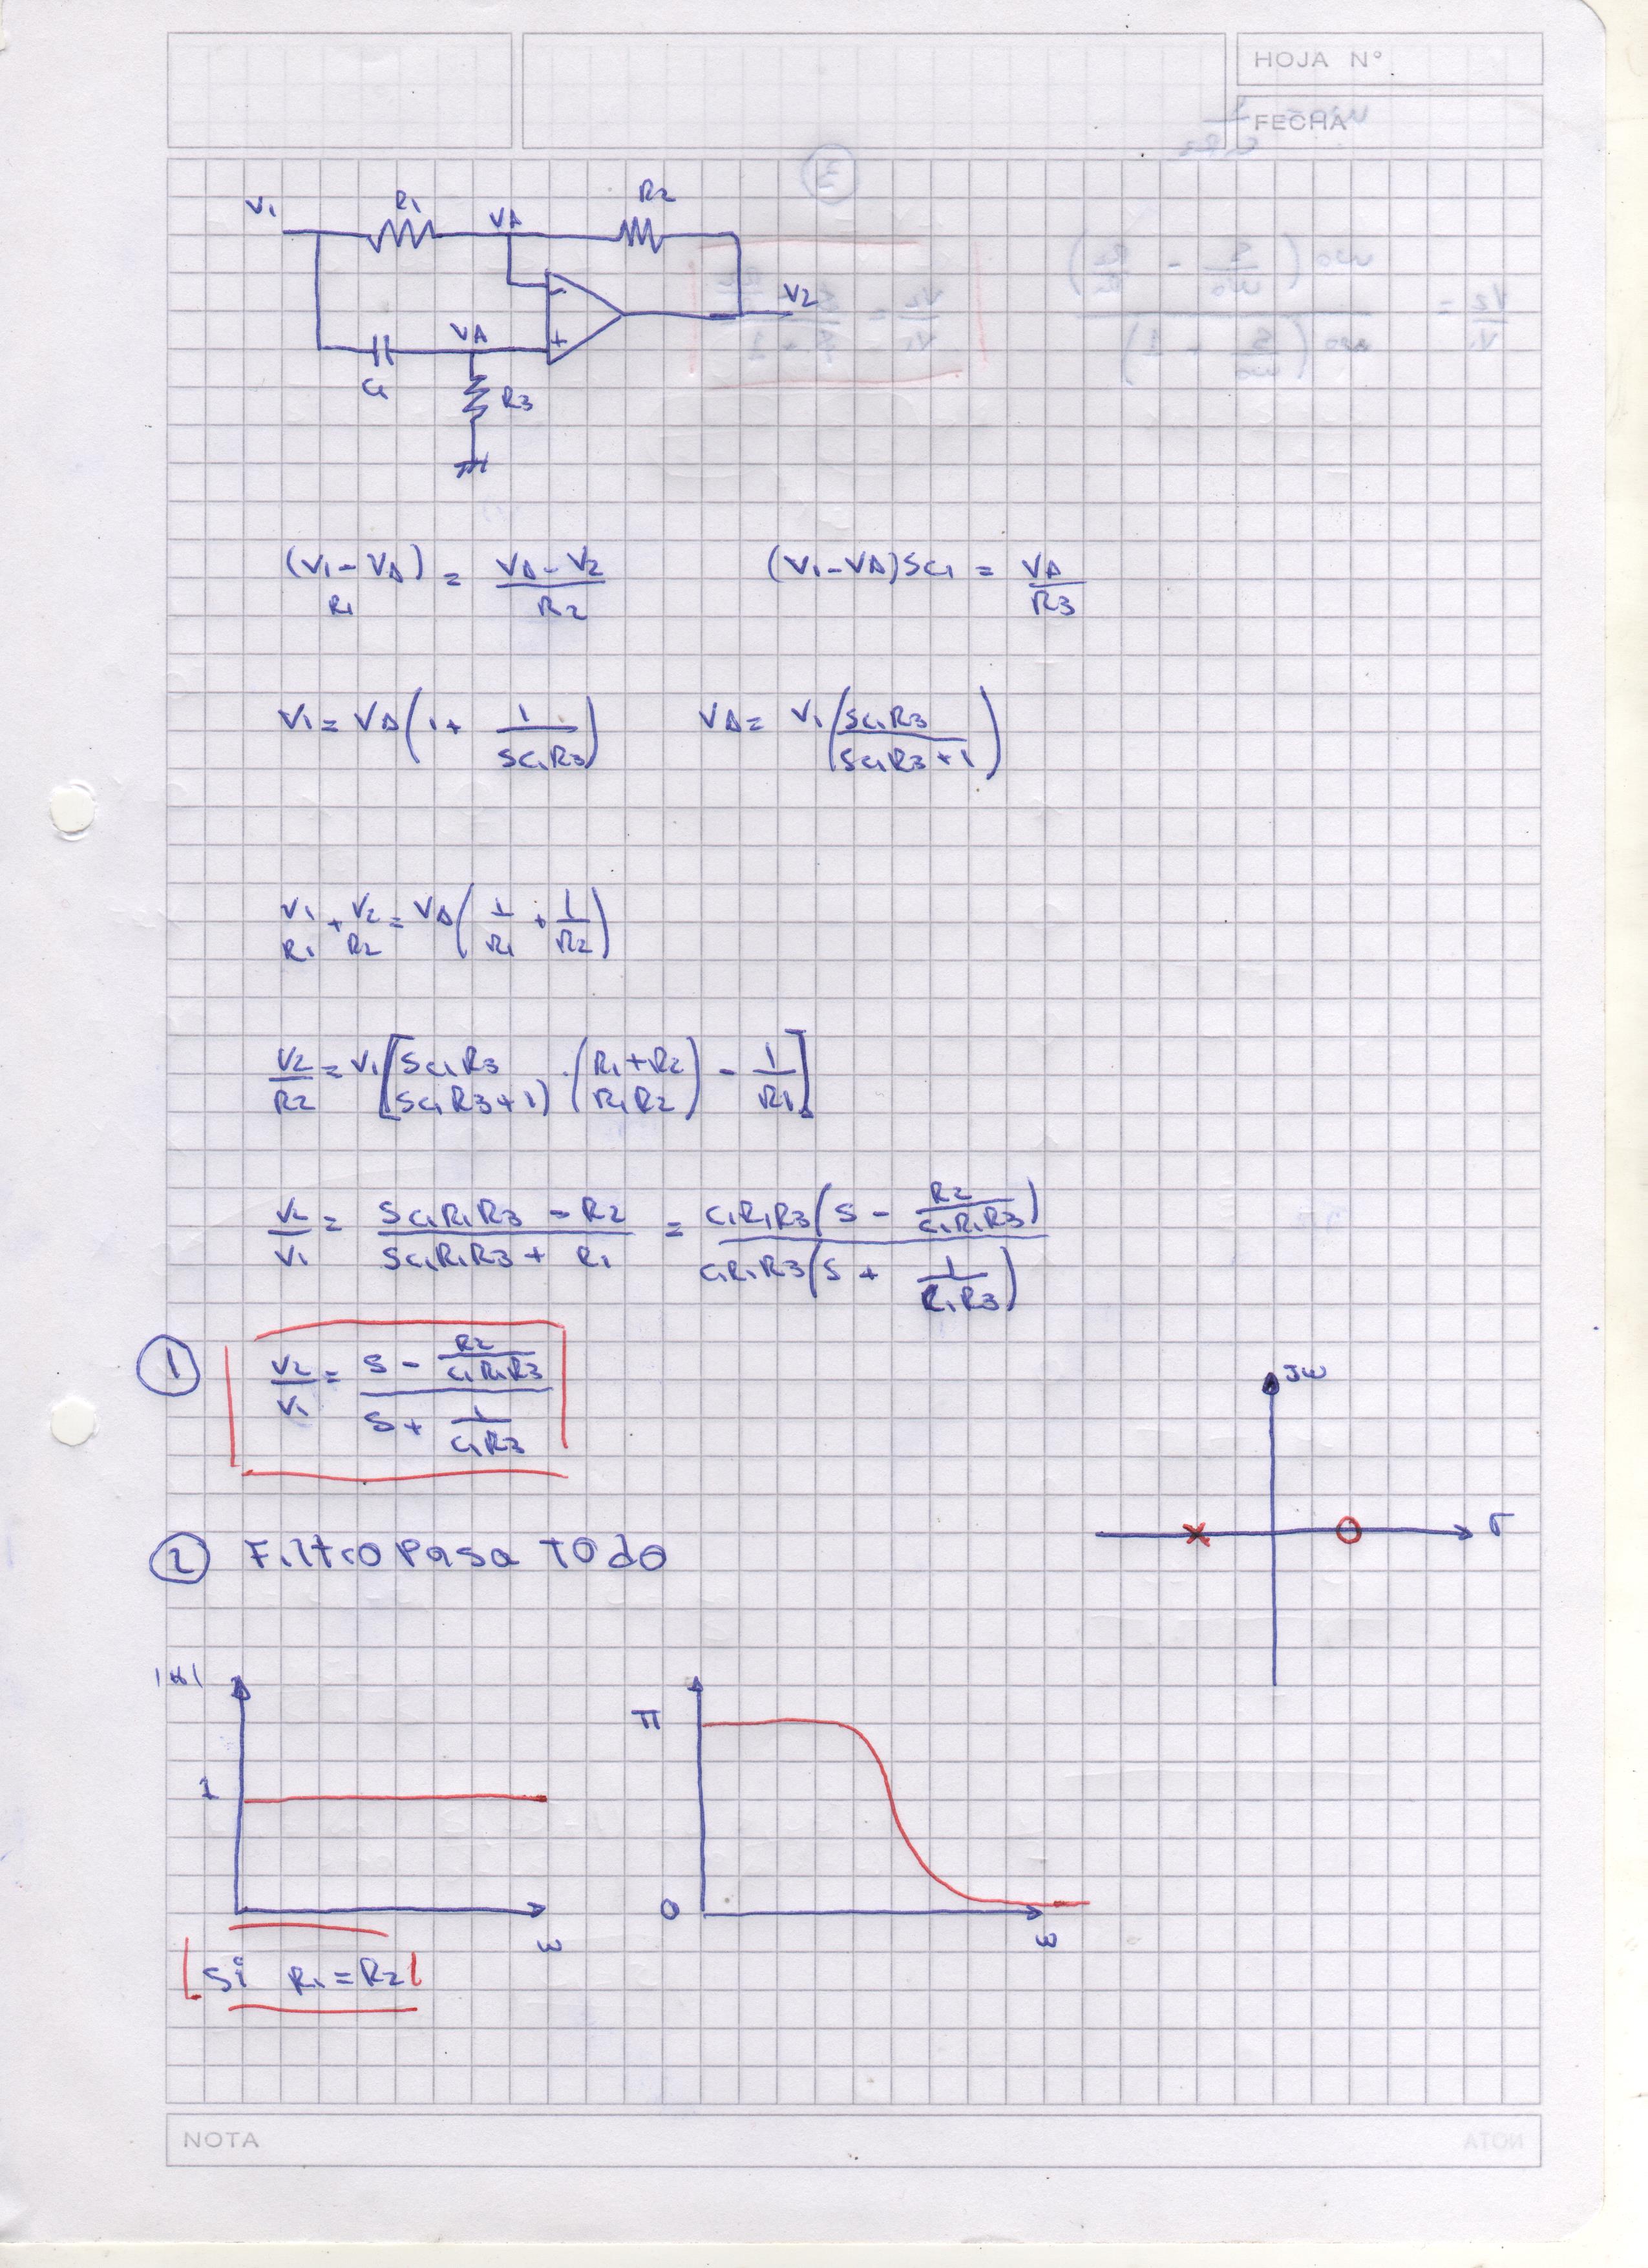 HOJA N°
FECHA
V1 R1 VA R2
V2
VA
C1
R3
(V1 - VA)/R1 = (VA - V2)/R2    (V1 - VA)SC1 = VA/R3
V1 = VA(1 + 1/(SC1R3))    VA = V1(SC1R3/(SC1R3+1))
V1/R1 + V2/R2 = VA(1/R1 + 1/R2)
V2/R2 = V1[SC1R3/(SC1R3+1) · ((R1+R2)/(R1R2)) - 1/R1]
V2/V1 = (SC1R1R3 - R2)/(SC1R1R3 + R1) = C1R1R3(S - R2/(C1R1R3)) / C1R1R3(S + 1/(R1R3))
① V2/V1 = (S - R2/(C1R1R3)) / (S + 1/(C1R3))
jω
σ
② Filtro Pasa Todo
|H|
1
ω
π
0
ω
Si R1 = R2
NOTA